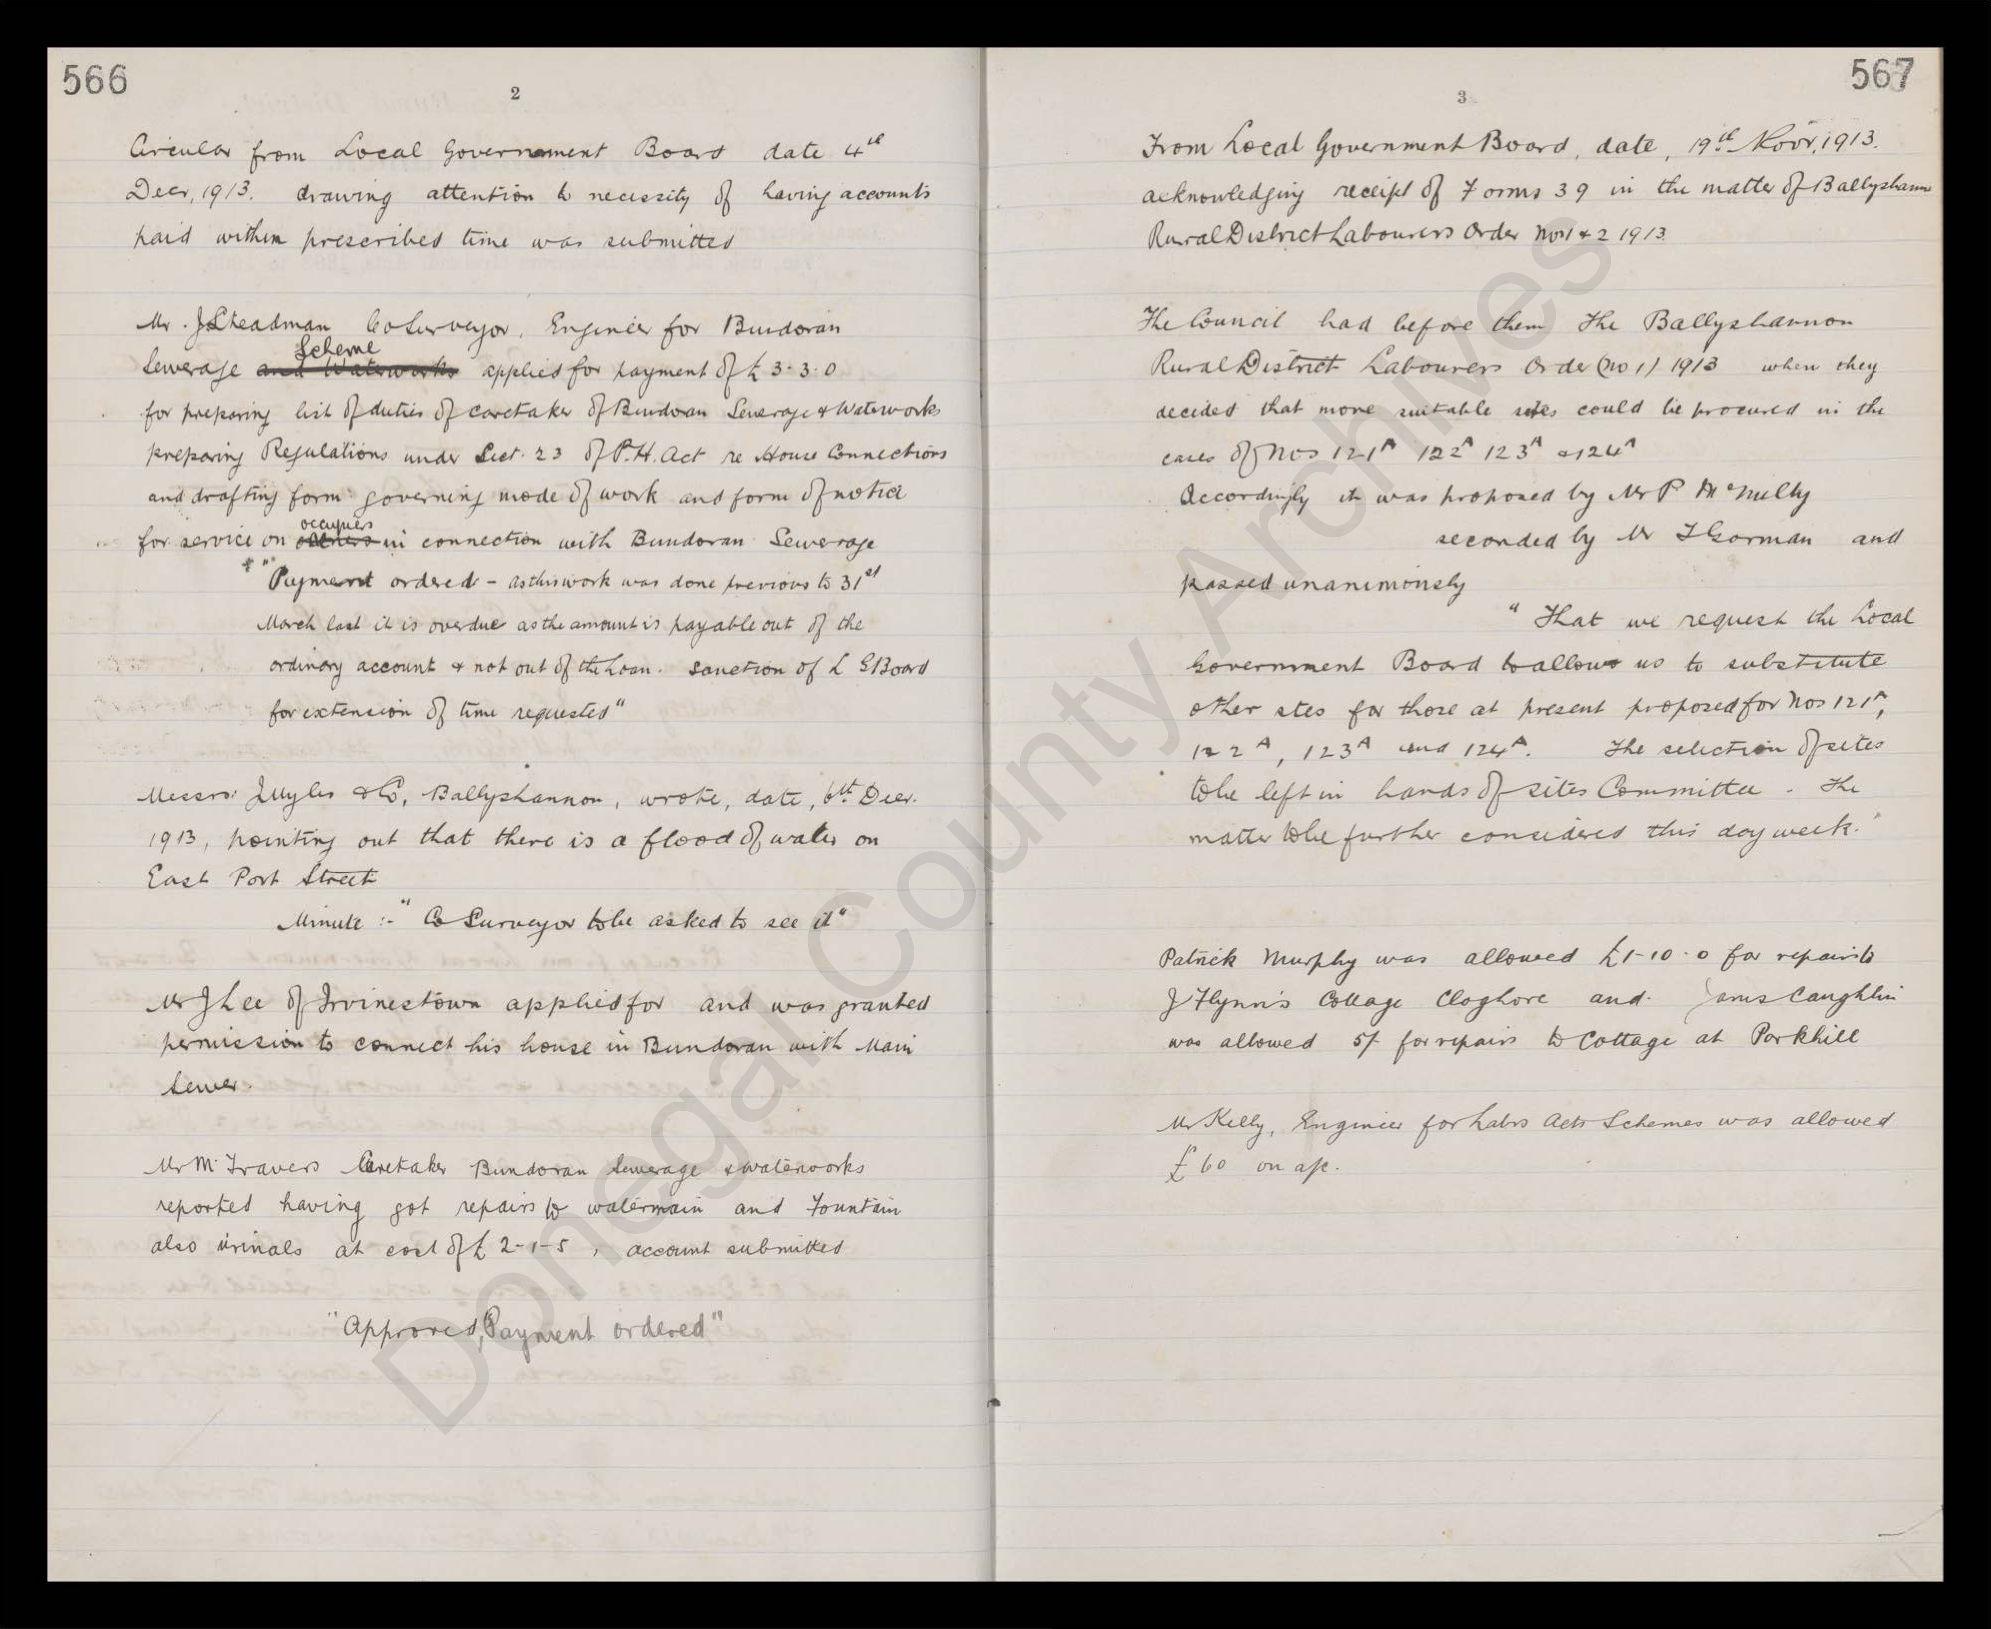 566
2
Circular from Local Government Board date 4th
Decr, 1913. drawing attention to necessity of having accounts
paid within prescribed time was submitted
Mr. J Steadman Co Surveyor, Engineer for Bundoran
Scheme
Sewerage and Waterworks applied for payment of £3-3-0
for preparing list of duties of caretaker of Bundoran Sewerage & Waterworks
preparing Regulations under Sect. 23 of P.H. Act re House Connections
and drafting form governing mode of work and form of notice
occupiers
for service on owners in connection with Bundoran Sewerage
"Payment ordered - as this work was done previous to 31st
March last it is overdue as the amount is payable out of the
ordinary account & not out of the Loan. Sanction of L G Board
for extension of time requested"
Messrs. J Myles & Co, Ballyshannon, wrote, date, 6th Decr.
1913, pointing out that there is a flood of water on
East Port Street
Minute :- "Co Surveyor to be asked to see it"
Mr J Lee of Irvinestown applied for and was granted
permission to connect his house in Bundoran with Main
Sewer.
Mr M. Travers Caretaker Bundoran Sewerage & Waterworks
reported having got repairs to watermain and Fountain
also urinals at cost of £2-1-5, account submitted
"Approved, Payment ordered"
567
3
From Local Government Board, date, 19th Novr, 1913.
acknowledging receipt of Forms 39 in the matter of Ballyshannon
Rural District Labourers Order Nos 1 & 2 1913
The Council had before them the Ballyshannon
Rural District Labourers Order (No 1) 1913 when they
decided that more suitable sites could be procured in the
cases of Nos 121A 122A 123A & 124A
Accordingly it was proposed by Mr P McNulty
seconded by Mr T Gorman and
passed unanimously
"That we request the Local
Government Board to allow us to substitute
other stes for those at present proposed for Nos 121A,
122A, 123A and 124A. The selection of sites
to be left in hands of sites Committee. The
matter to be further considered this day week."
Patrick Murphy was allowed £1-10-0 for repairs to
J Flynn's Cottage Cloghore and James Caughlin
was allowed 5/ for repairs to Cottage at Parkhill
Mr Kelly, Engineer for Labrs Acts Schemes was allowed
£60 on a/c.
Donegal County Archives